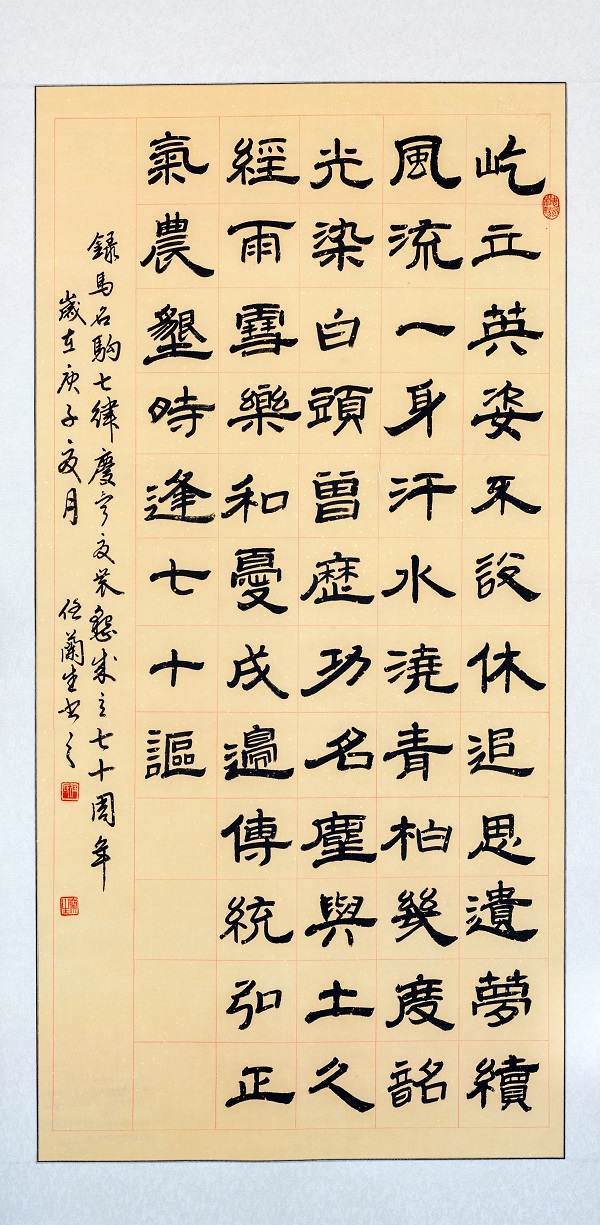 屹立英姿不說休追思遺夢續
風流一身汗水澆青柏幾度韶
光染白頭曾歷功名塵與土久
經雨雪樂和憂戍邊傳統弘正
氣農墾時逢七十謳
錄馬名駒七律慶寧夏農墾成立七十周年
歲在庚子夏月 任蘭生書之